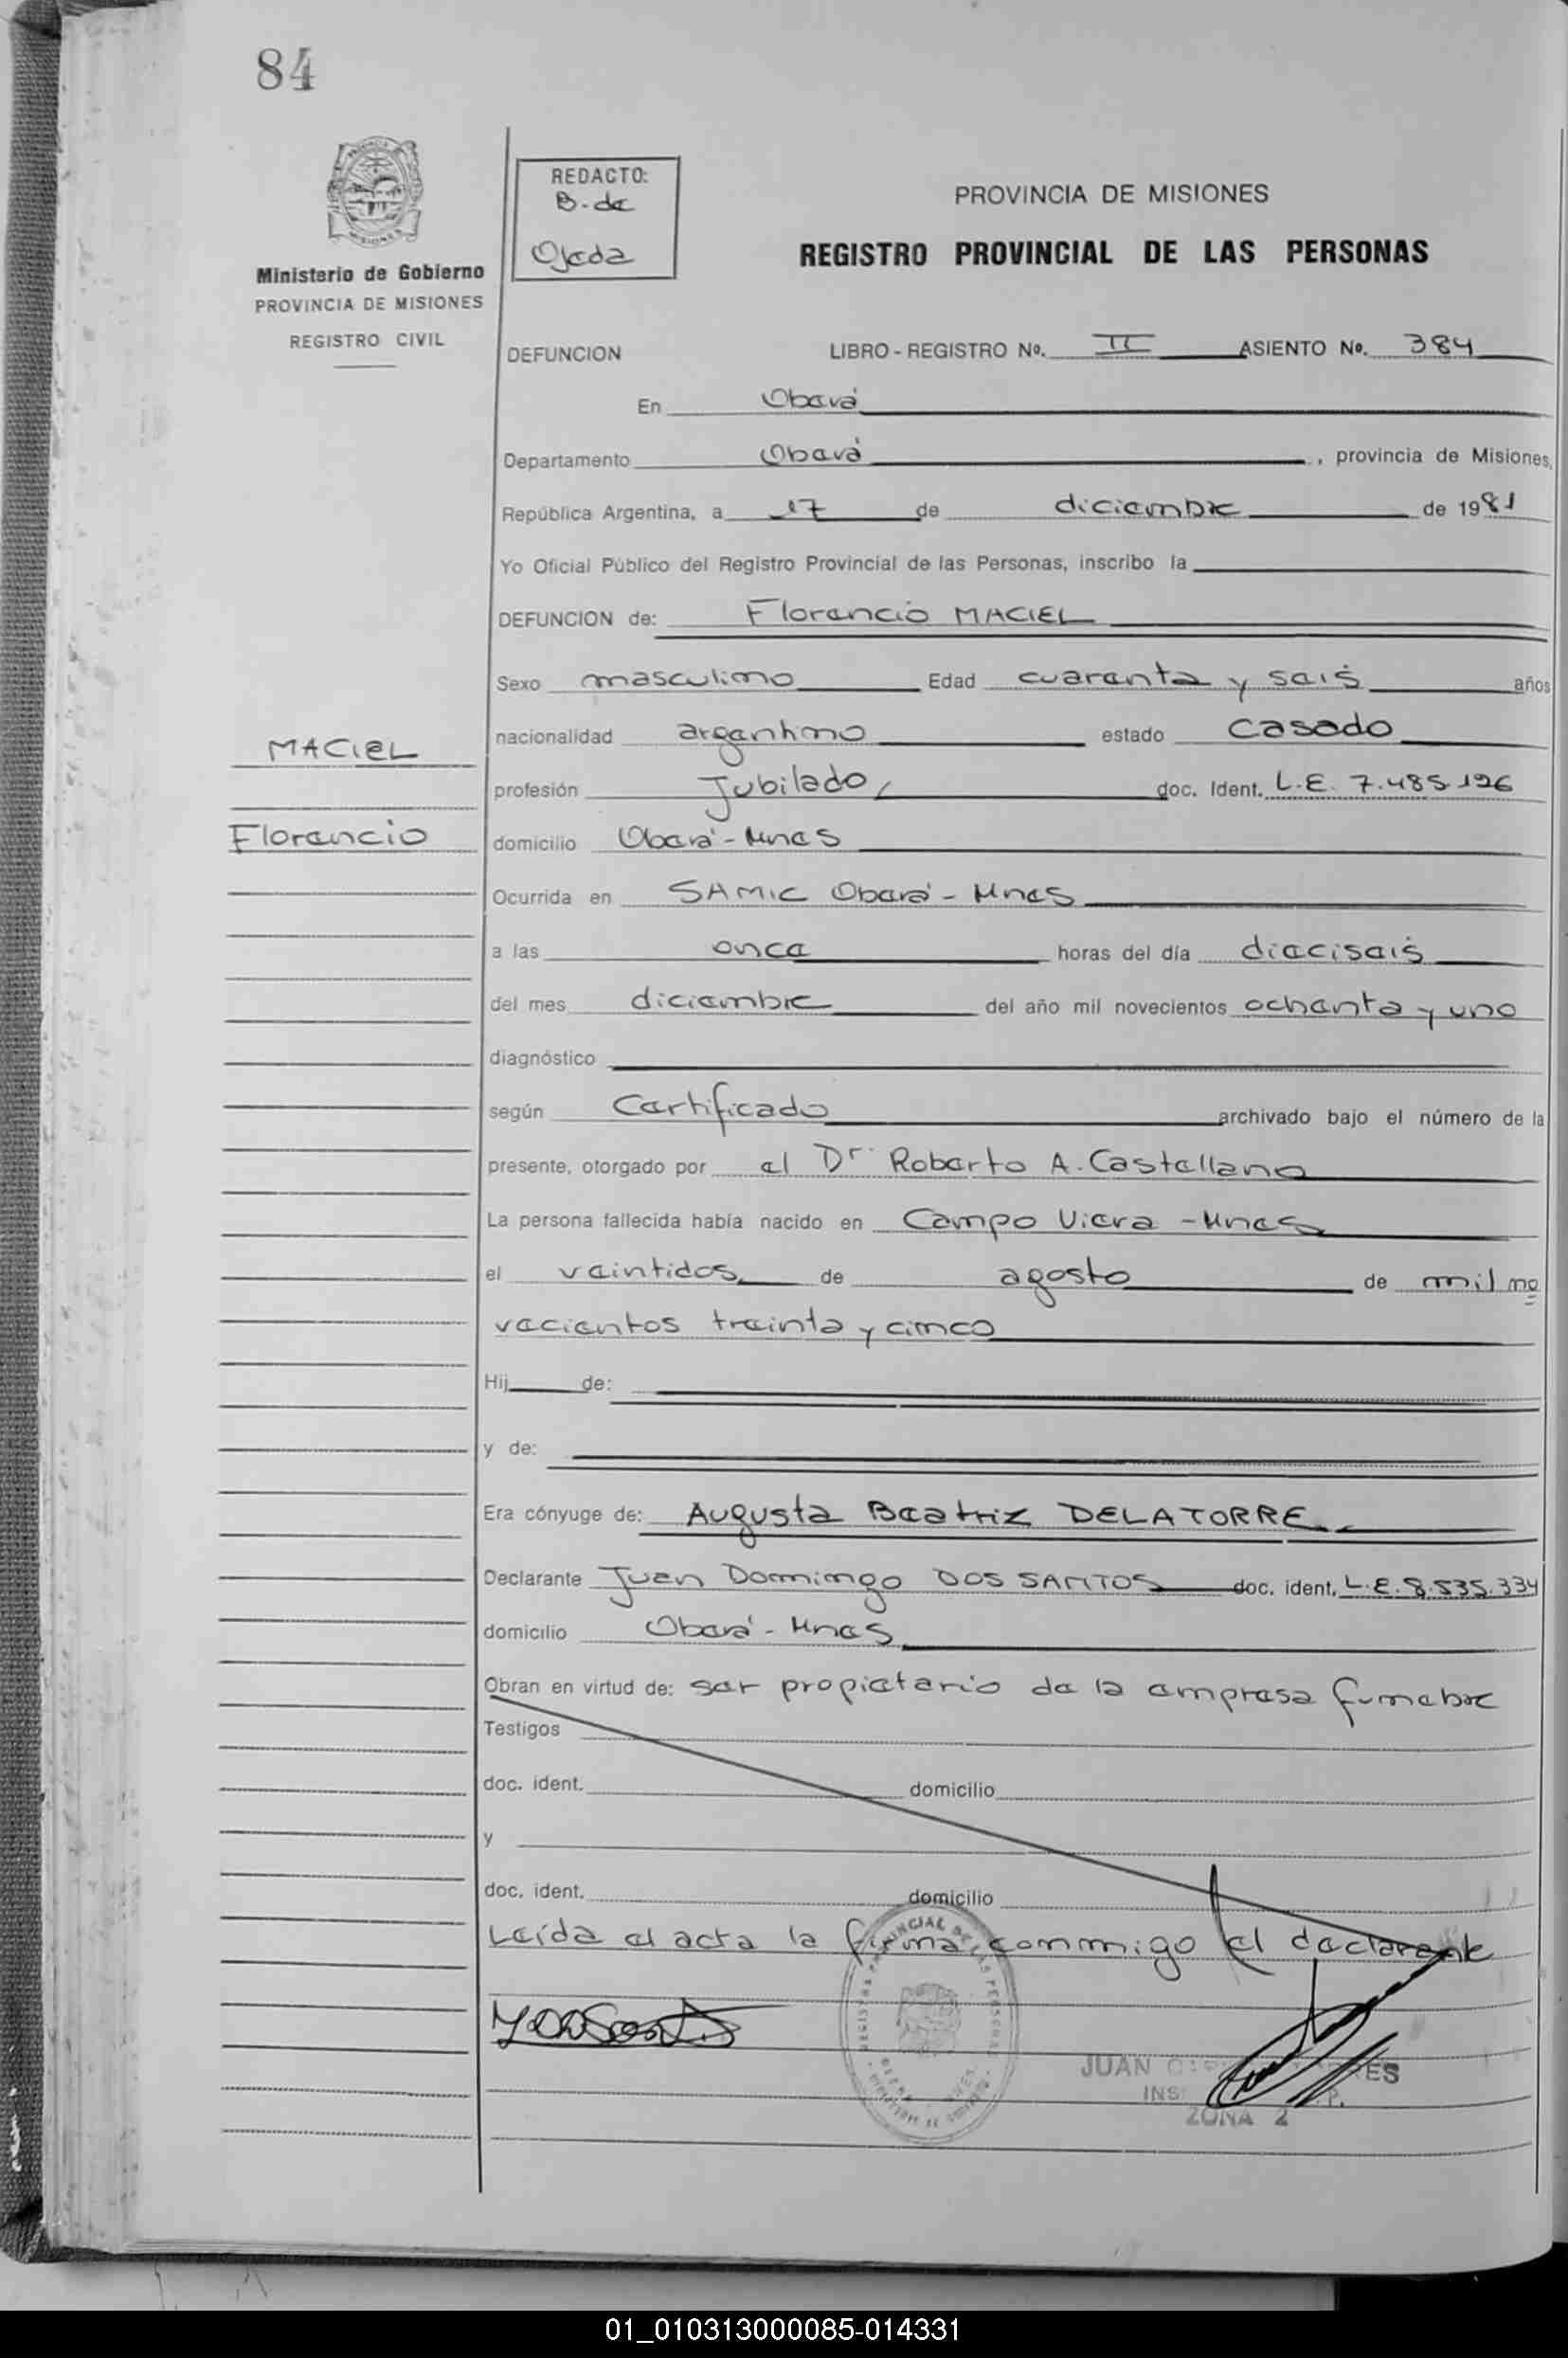 84
Ministerio de Gobierno
PROVINCIA DE MISIONES
REGISTRO CIVIL
REDACTO:
B. de
Ojeda
PROVINCIA DE MISIONES
REGISTRO PROVINCIAL DE LAS PERSONAS
DEFUNCION LIBRO - REGISTRO Nº. II ASIENTO Nº. 384
En Oberá
Departamento Oberá, provincia de Misiones,
República Argentina, a 17 de diciembre de 1981
Yo Oficial Público del Registro Provincial de las Personas, inscribo la
DEFUNCION de: Florencio MACIEL
Sexo masculino Edad cuarenta y seis años
nacionalidad argentino estado casado
MACIEL
profesión Jubilado, doc. Ident. L.E. 7.485.126
Florencio
domicilio Oberá - Mnes
Ocurrida en SAMIC Oberá - Mnes
a las once horas del día dieciseis
del mes diciembre del año mil novecientos ochenta y uno
diagnóstico
según Certificado archivado bajo el número de la
presente, otorgado por el Dr Roberto A. Castellano
La persona fallecida había nacido en Campo Viera - Mnes
el veintidos de agosto de mil no
vecientos treinta y cinco
Hij de:
y de:
Era cónyuge de: Augusta Beatriz DELATORRE
Declarante Juan Domingo DOS SANTOS doc. ident. L.E. 8.535.334
domicilio Oberá - Mnes
Obran en virtud de: ser propietario de la empresa funebre
Testigos
doc. ident. domicilio
y
doc. ident. domicilio
Leída el acta la firma conmigo el declarante
JUAN
INS
ZONA 2
01_010313000085-014331